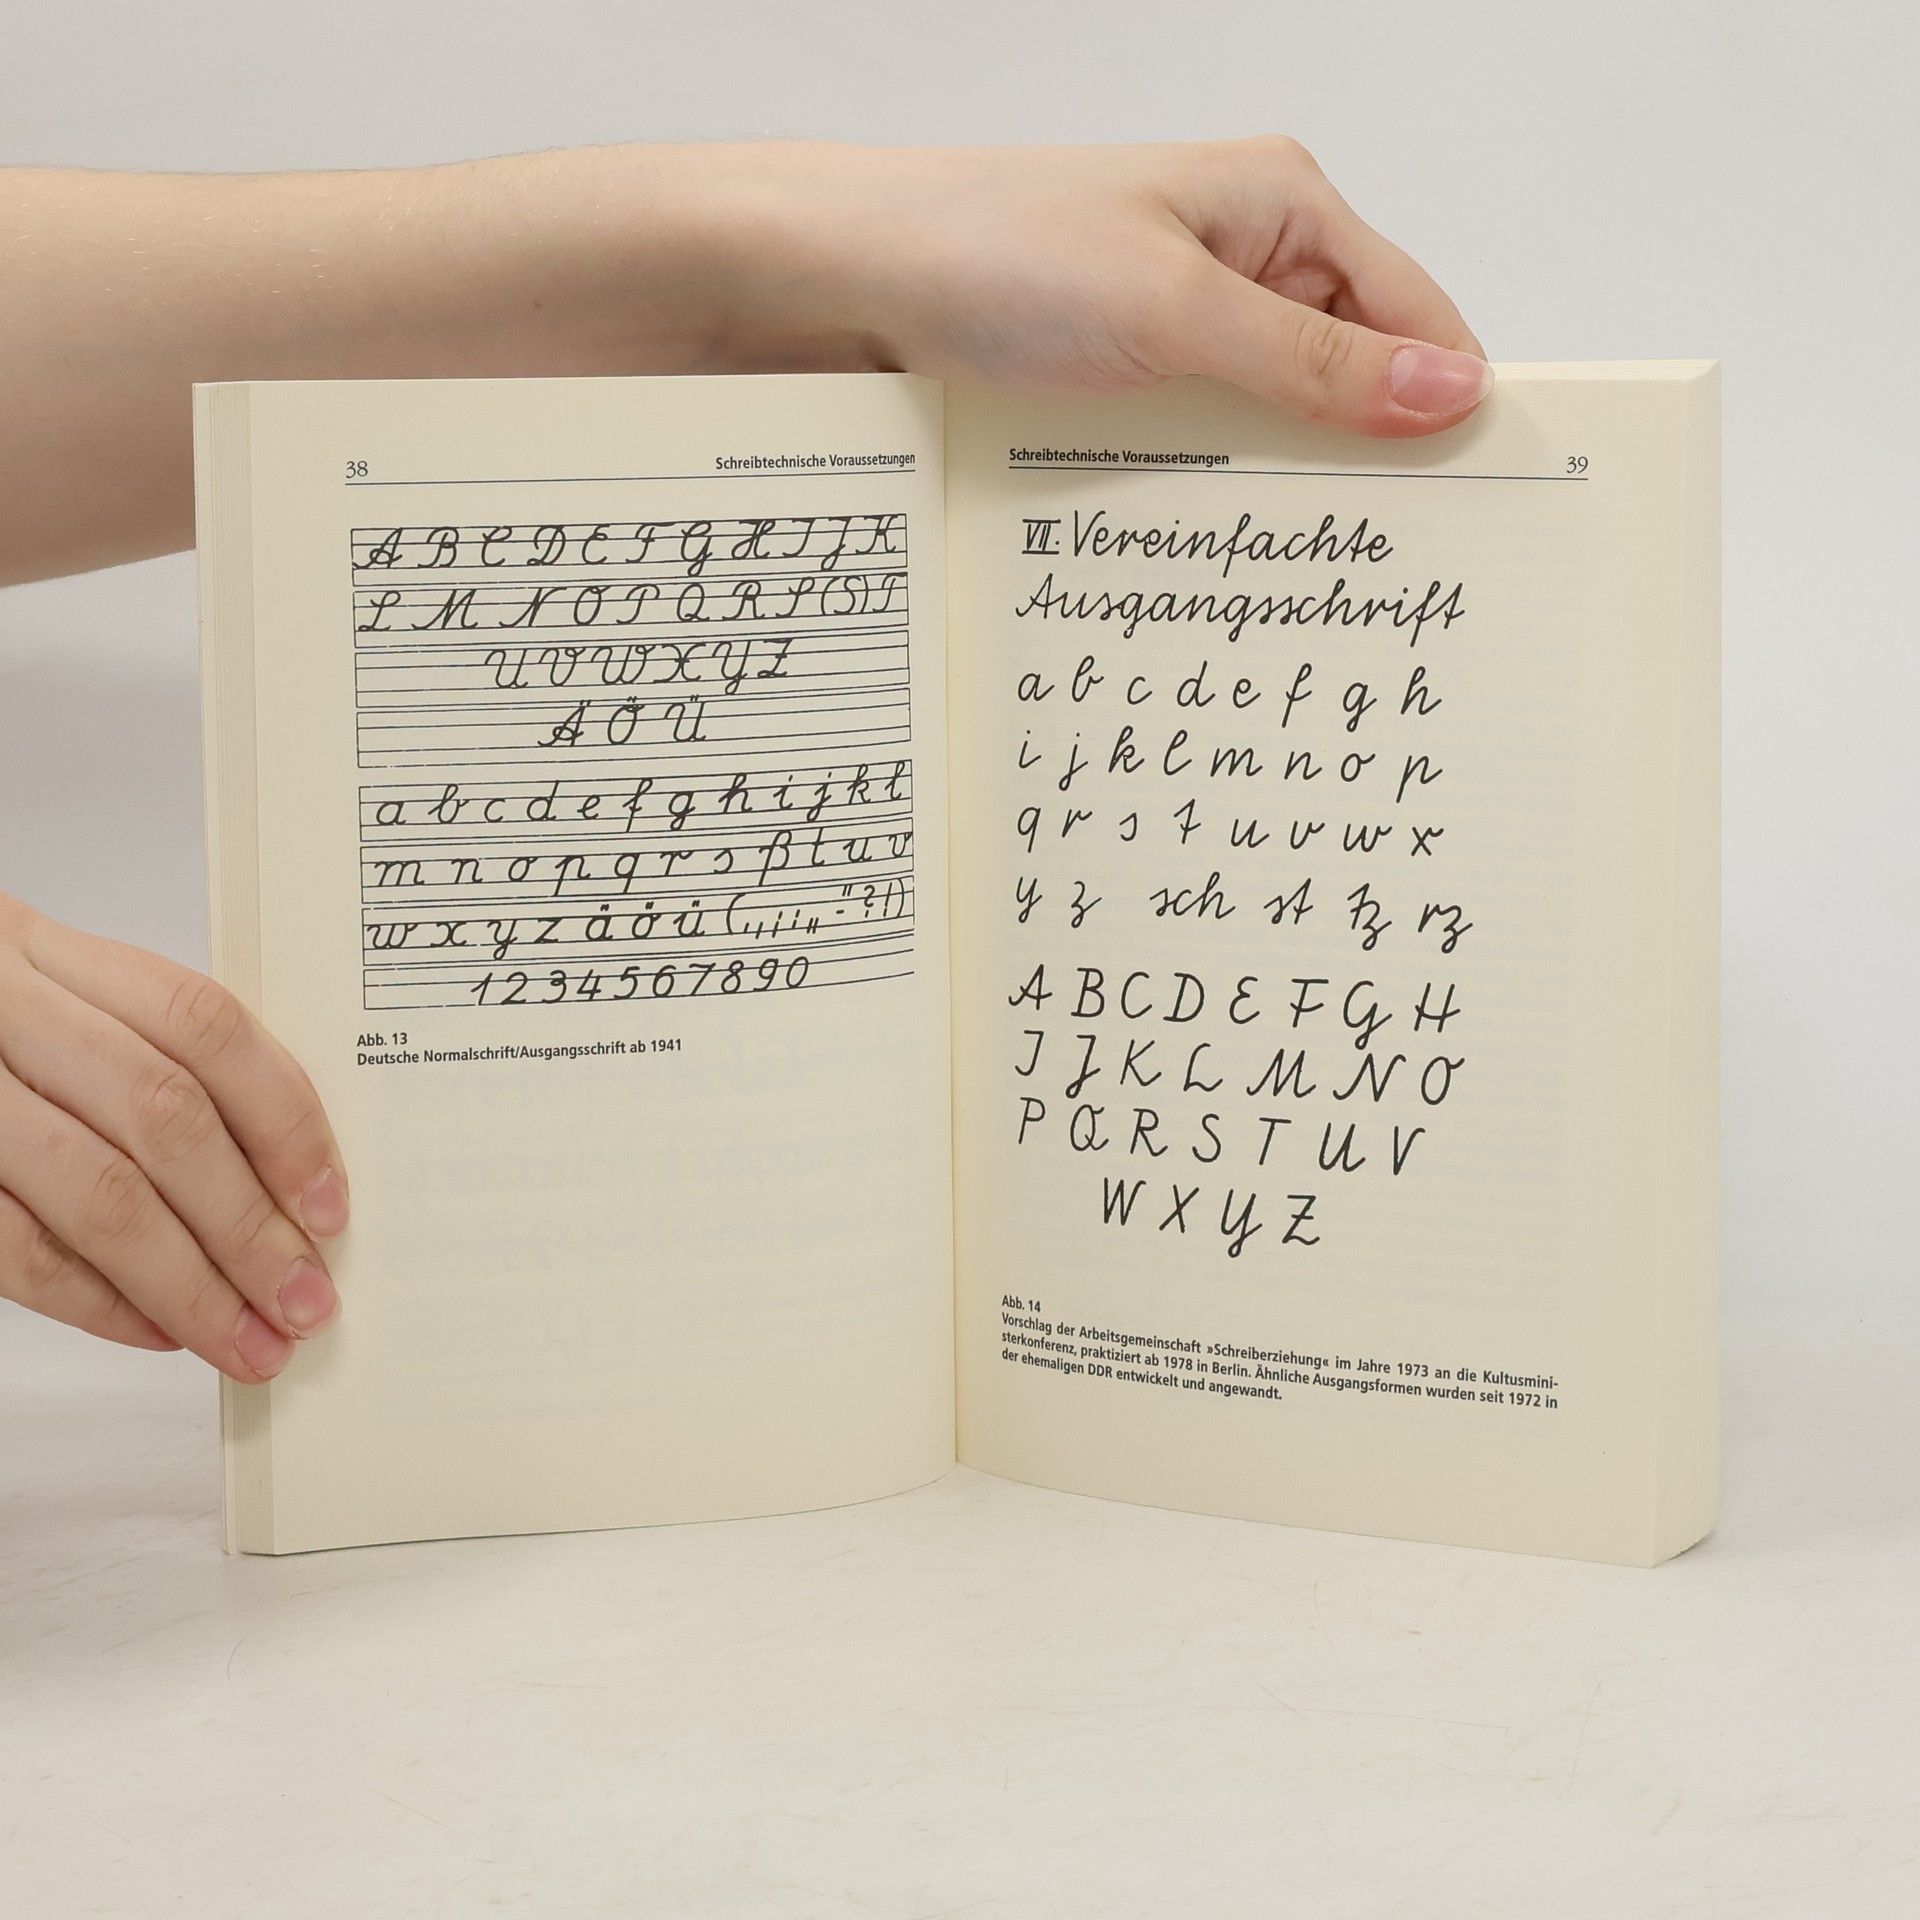 38 Schreibtechnische Voraussetzungen
A B C D E F G H I J K
L M N O P Q R S (S) T
U V W X Y Z
Ä Ö Ü
a b c d e f g h i j k l
m n o p q r s ß t u v
w x y z ä ö ü
1 2 3 4 5 6 7 8 9 0
Abb. 13
Deutsche Normalschrift/Ausgangsschrift ab 1941
Schreibtechnische Voraussetzungen 39
VII. Vereinfachte
Ausgangsschrift
a b c d e f g h
i j k l m n o p
q r s t u v w x
y z sch st tz rz
A B C D E F G H
I J K L M N O
P Q R S T U V
W X Y Z
Abb. 14
Vorschlag der Arbeitsgemeinschaft »Schreiberziehung« im Jahre 1973 an die Kultusmini-
sterkonferenz, praktiziert ab 1978 in Berlin. Ähnliche Ausgangsformen wurden seit 1972 in
der ehemaligen DDR entwickelt und angewandt.